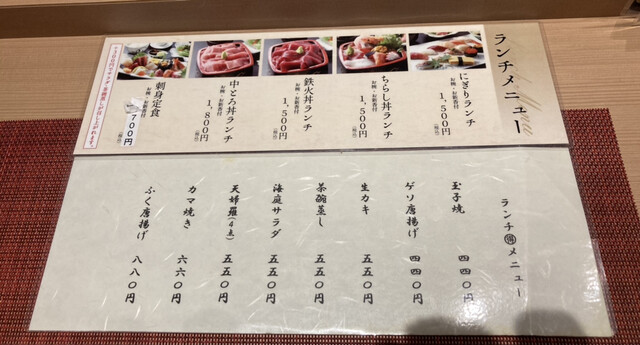 ランチメニュー
にぎりランチ
お椀・お新香付
1,500円
ちらし丼ランチ
お椀・お新香付
1,500円
鉄火丼ランチ
お椀・お新香付
1,500円
中とろ丼ランチ
お椀・お新香付
1,800円
刺身定食
お椀・お新香付
700円
ランチ得メニュー
玉子焼
四四〇円
ゲソ唐揚げ
四四〇円
生カキ
五五〇円
茶碗蒸し
五五〇円
海庭サラダ
五五〇円
天婦羅(4点)
五五〇円
カマ焼き
六六〇円
ふく唐揚げ
八八〇円